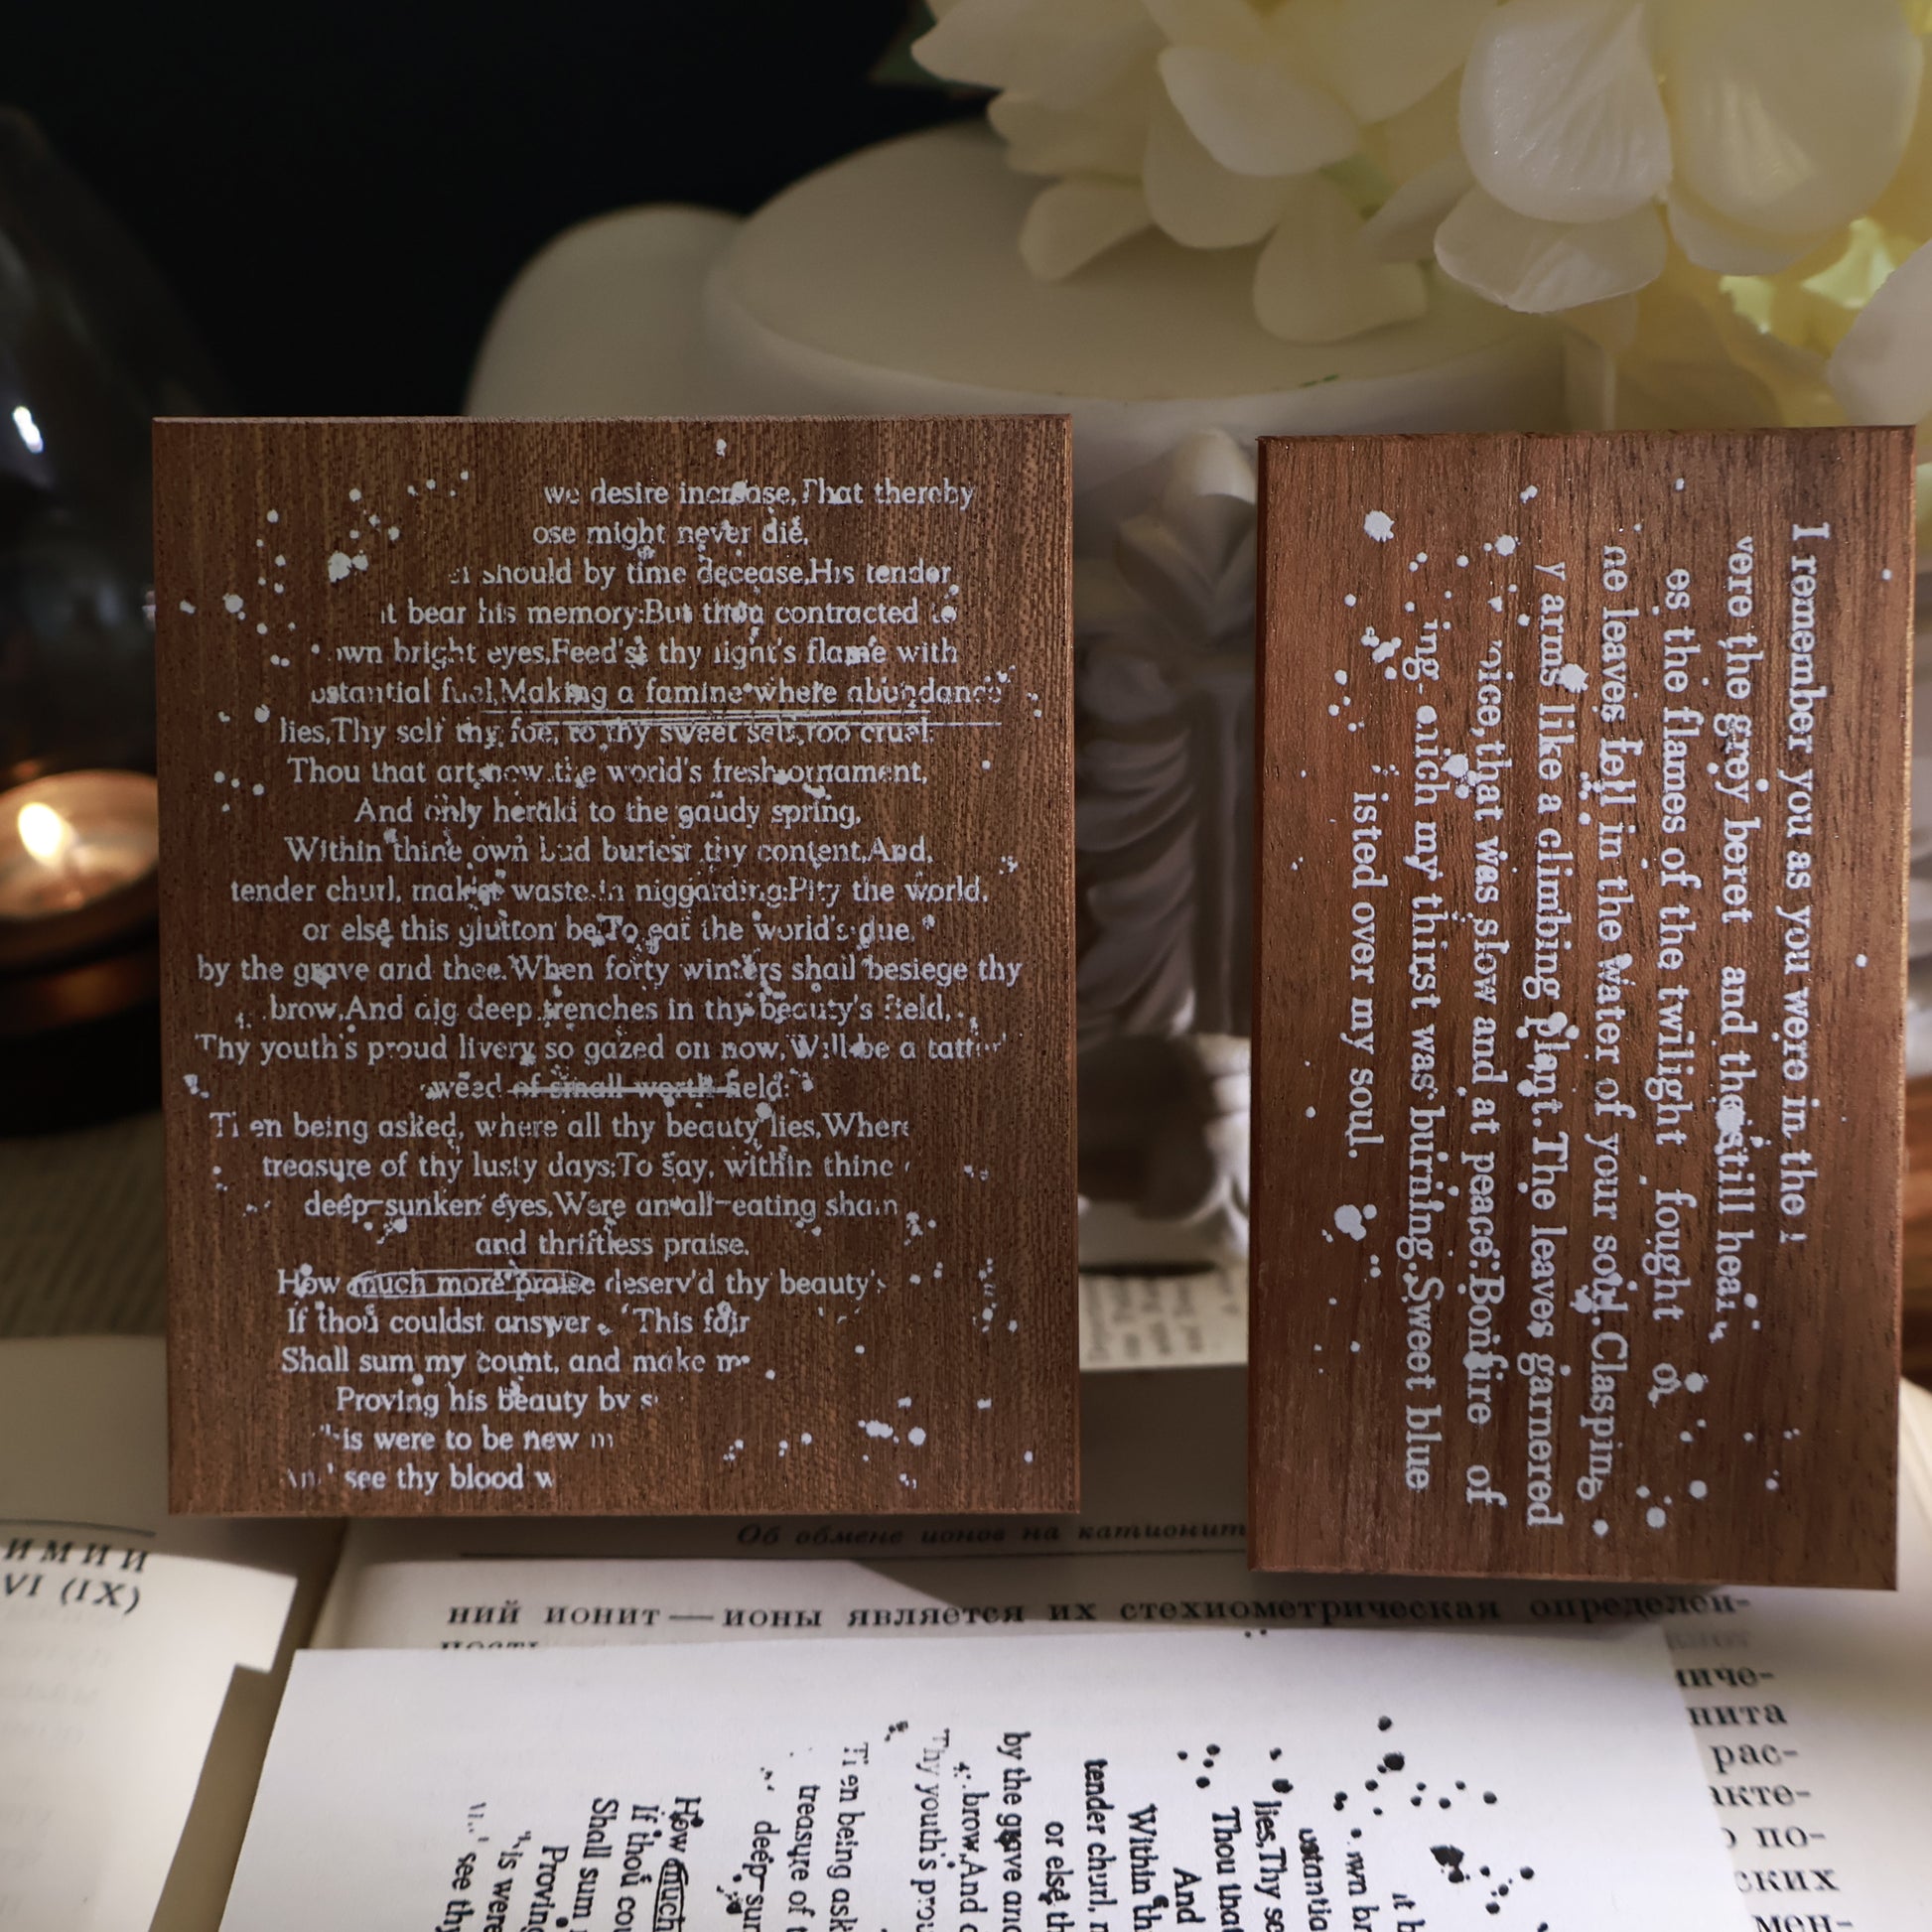 we desire increase,That thereby
ose might never die,
should by time decease,His tender
it bear his memory:But thou contracted to
wn bright eyes,Feed'st thy light's flame with
ustantial fuel,Making a famine where abundance
lies,Thy self thy foe, to thy sweet self too cruel:
Thou that art now the world's fresh ornament,
And only herald to the gaudy spring,
Within thine own bud buriest thy content,And,
tender churl, mak'st waste in niggarding:Pity the world,
or else this glutton be,To eat the world's due,
by the grave and thee.When forty winters shall besiege thy
brow,And dig deep trenches in thy beauty's field,
Thy youth's proud livery so gazed on now,Will be a tatter
weed of small worth held:
Then being asked, where all thy beauty lies,Where
treasure of thy lusty days;To say, within thine
deep-sunken eyes,Were an all-eating sham
and thriftless praise.
How much more praise deserv'd thy beauty's
If thou couldst answer 'This fair
Shall sum my count, and make m
Proving his beauty by s
his were to be new m
And see thy blood w
I remember you as you were in the l
were the grey beret and the still hear
es the flames of the twilight fought on
he leaves fell in the water of your soul.Clasping
y arms like a climbing plant.The leaves garnered
voice,that was slow and at peace.Bonfire of
ing which my thirst was burning.Sweet blue
isted over my soul.
ИМИИ
VI (IX)
Об обмене ионов на катионит
ний ионит — ионы является их стехиометрическая определен-
ность
ниче-
нита
рас-
акте-
о по-
ских
мен-
it b
wn br
ustantia
lies,Thy se
Thou that
And
Within th
tender churl, m
or else th
by the grave and
brow,And d
Thy youth's prou
Ti en being ask
treasure of t
deep-sur
How much
If thou cou
Shall sum
Proving
is were
see thy